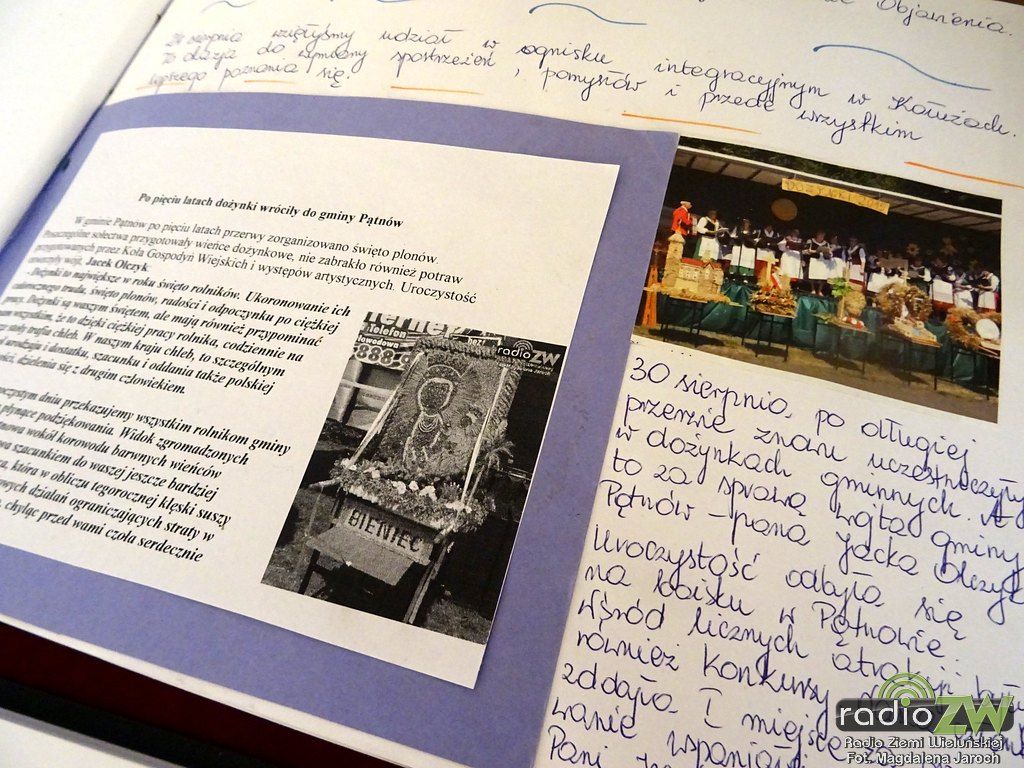 Objawienia.
24 sierpnia wzięłyśmy udział w ognisku integracyjnym w Kałużach.
To okazja do wymiany spostrzeżeń, pomysłów i przede wszystkim
lepszego poznania się.
Po pięciu latach dożynki wróciły do gminy Pątnów
W gminie Pątnów po pięciu latach przerwy zorganizowano święto plonów.
Poszczególne sołectwa przygotowały wieńce dożynkowe, nie zabrakło również potraw
przygotowanych przez Koła Gospodyń Wiejskich i występów artystycznych. Uroczystość
otworzył wójt, Jacek Olczyk.
- Dożynki to największe w roku święto rolników. Ukoronowanie ich
całorocznego trudu, święto plonów, radości i odpoczynku po ciężkiej
pracy. Dożynki są waszym świętem, ale mają również przypominać
wszystkim, że to dzięki ciężkiej pracy rolnika, codziennie na
stoły trafia chleb. W naszym kraju chleb, to szczególnym
urodzaju i dostatku, szacunku i oddania także polskiej
dzielenia się z drugim człowiekiem.
uroczystym dniu przekazujemy wszystkim rolnikom gminy
płynące podziękowania. Widok zgromadzonych
wokół korowodu barwnych wieńców
szacunkiem do waszej jeszcze bardziej
która w obliczu tegorocznej klęski suszy
działań ograniczających straty w
chyląc przed wami czoła serdecznie
Telefon
888-9
radioZW
BIENIEC
DOŻYNKI
30 sierpnia, po długiej
przerwie znów uczestniczyły
w dożynkach gminnych. A
to za sprawą wójta gminy
Pątnów - pana Jacka Olczyk
Uroczystość odbyła się
na boisku w Pątnowie.
Wśród licznych atrakcji był
również konkursy
zdobyła I miejsce za
wspaniał
Pani
radioZW
Radio Ziemi Wieluńskiej
Fot. Magdalena Jaroch